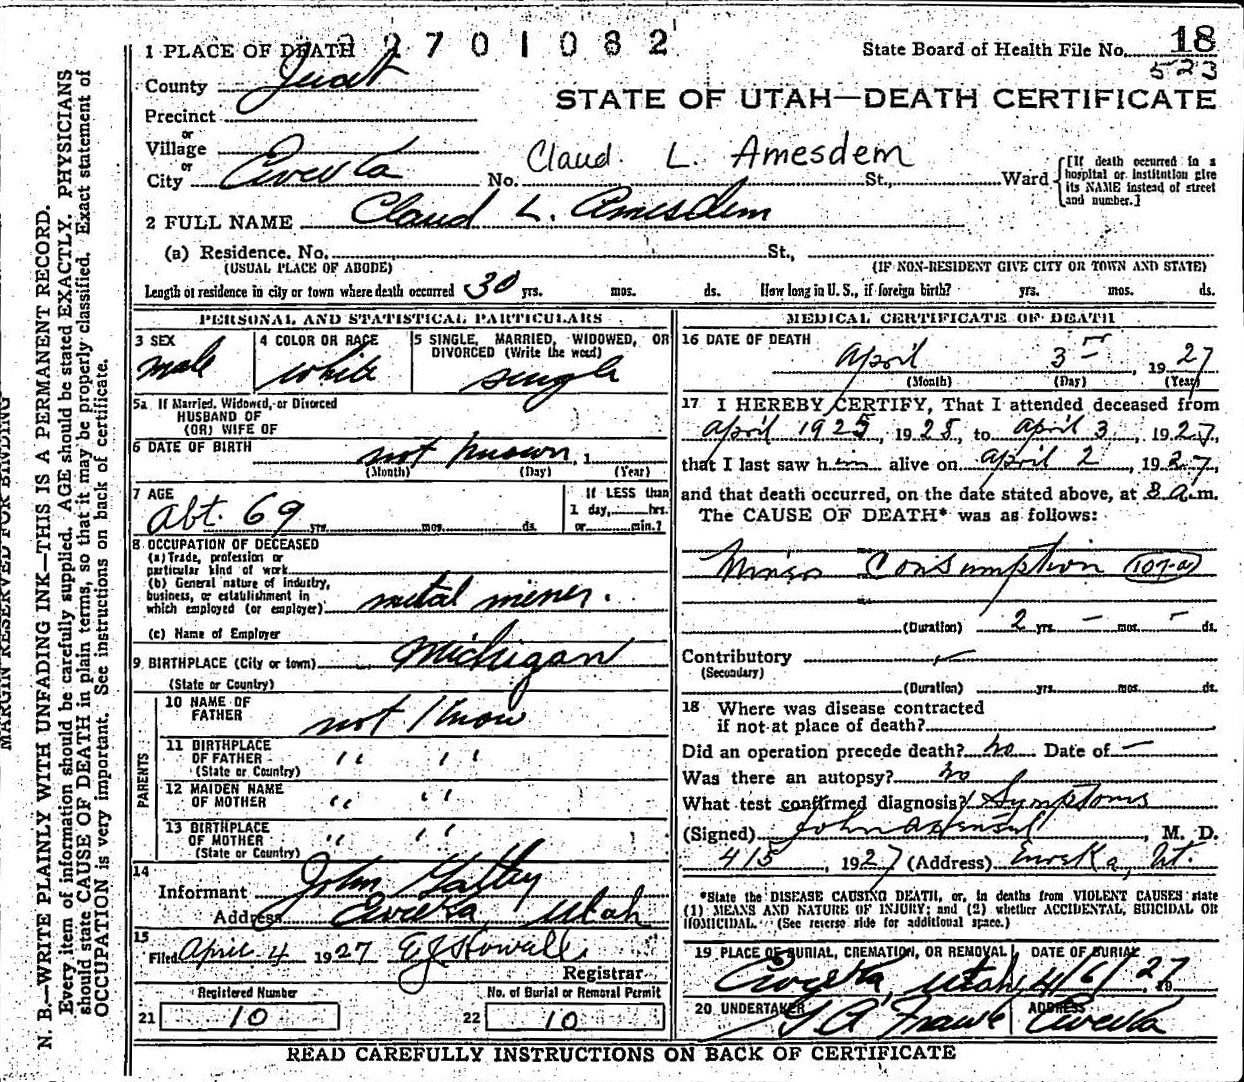 1 PLACE OF DEATH
2701082
State Board of Health File No. 18
523
County Juab
STATE OF UTAH—DEATH CERTIFICATE
Precinct
or
Village
or
City Eureka No. St., Ward
Claud. L. Amesdem
[If death occurred in a hospital or institution give its NAME instead of street and number.]
2 FULL NAME Claud L. Amesdem
(a) Residence. No. St.,
(USUAL PLACE OF ABODE) (IF NON-RESIDENT GIVE CITY OR TOWN AND STATE)
Length of residence in city or town where death occurred 30 yrs. mos. ds. How long in U. S., if foreign birth? yrs. mos. ds.
PERSONAL AND STATISTICAL PARTICULARS
3 SEX
male
4 COLOR OR RACE
white
5 SINGLE, MARRIED, WIDOWED, OR DIVORCED (Write the word)
single
5a If Married, Widowed, or Divorced
HUSBAND OF
(OR) WIFE OF
6 DATE OF BIRTH not known, 1
(Month) (Day) (Year)
7 AGE
Abt. 69 yrs. mos. ds.
If LESS than
1 day, hrs.
or min.?
8 OCCUPATION OF DECEASED
(a) Trade, profession or
particular kind of work
(b) General nature of industry,
business, or establishment in
which employed (or employer) metal miner.
(c) Name of Employer
9 BIRTHPLACE (City or town) Michigan
(State or Country)
PARENTS
10 NAME OF
FATHER not know
11 BIRTHPLACE
OF FATHER " "
(State or Country)
12 MAIDEN NAME
OF MOTHER " "
13 BIRTHPLACE
OF MOTHER " "
(State or Country)
14
Informant John
Address Eureka, Utah
15
Filed April 4 1927 E J Howell
Registrar
Registered Number
21 10
No. of Burial or Removal Permit
22 10
MEDICAL CERTIFICATE OF DEATH
16 DATE OF DEATH
April 3 — , 1927
(Month) (Day) (Year)
17 I HEREBY CERTIFY, That I attended deceased from
April 1925, 1925, to April 3, 1927,
that I last saw him alive on April 2, 1927,
and that death occurred, on the date stated above, at 8 a.m.
The CAUSE OF DEATH* was as follows:
Miners Consumption (107-a)
(Duration) 2 yrs. — mos. — ds.
Contributory
(Secondary)
(Duration) yrs. mos. ds.
18 Where was disease contracted
if not at place of death?
Did an operation precede death? no Date of —
Was there an autopsy? no
What test confirmed diagnosis? Symptoms
(Signed) John Hensel, M. D.
4/5, 1927 (Address) Eureka, Ut.
*State the DISEASE CAUSING DEATH, or, in deaths from VIOLENT CAUSES state
(1) MEANS AND NATURE OF INJURY; and (2) whether ACCIDENTAL, SUICIDAL OR
HOMICIDAL. (See reverse side for additional space.)
19 PLACE OF BURIAL, CREMATION, OR REMOVAL
Eureka, Utah
DATE OF BURIAL
4/6/27 19
20 UNDERTAKER
ADDRESS
Eureka
READ CAREFULLY INSTRUCTIONS ON BACK OF CERTIFICATE
MARGIN RESERVED FOR BINDING
N. B.—WRITE PLAINLY WITH UNFADING INK—THIS IS A PERMANENT RECORD.
Every item of information should be carefully supplied. AGE should be stated EXACTLY. PHYSICIANS
should state CAUSE OF DEATH in plain terms, so that it may be properly classified. Exact statement of
OCCUPATION is very important. See instructions on back of certificate.